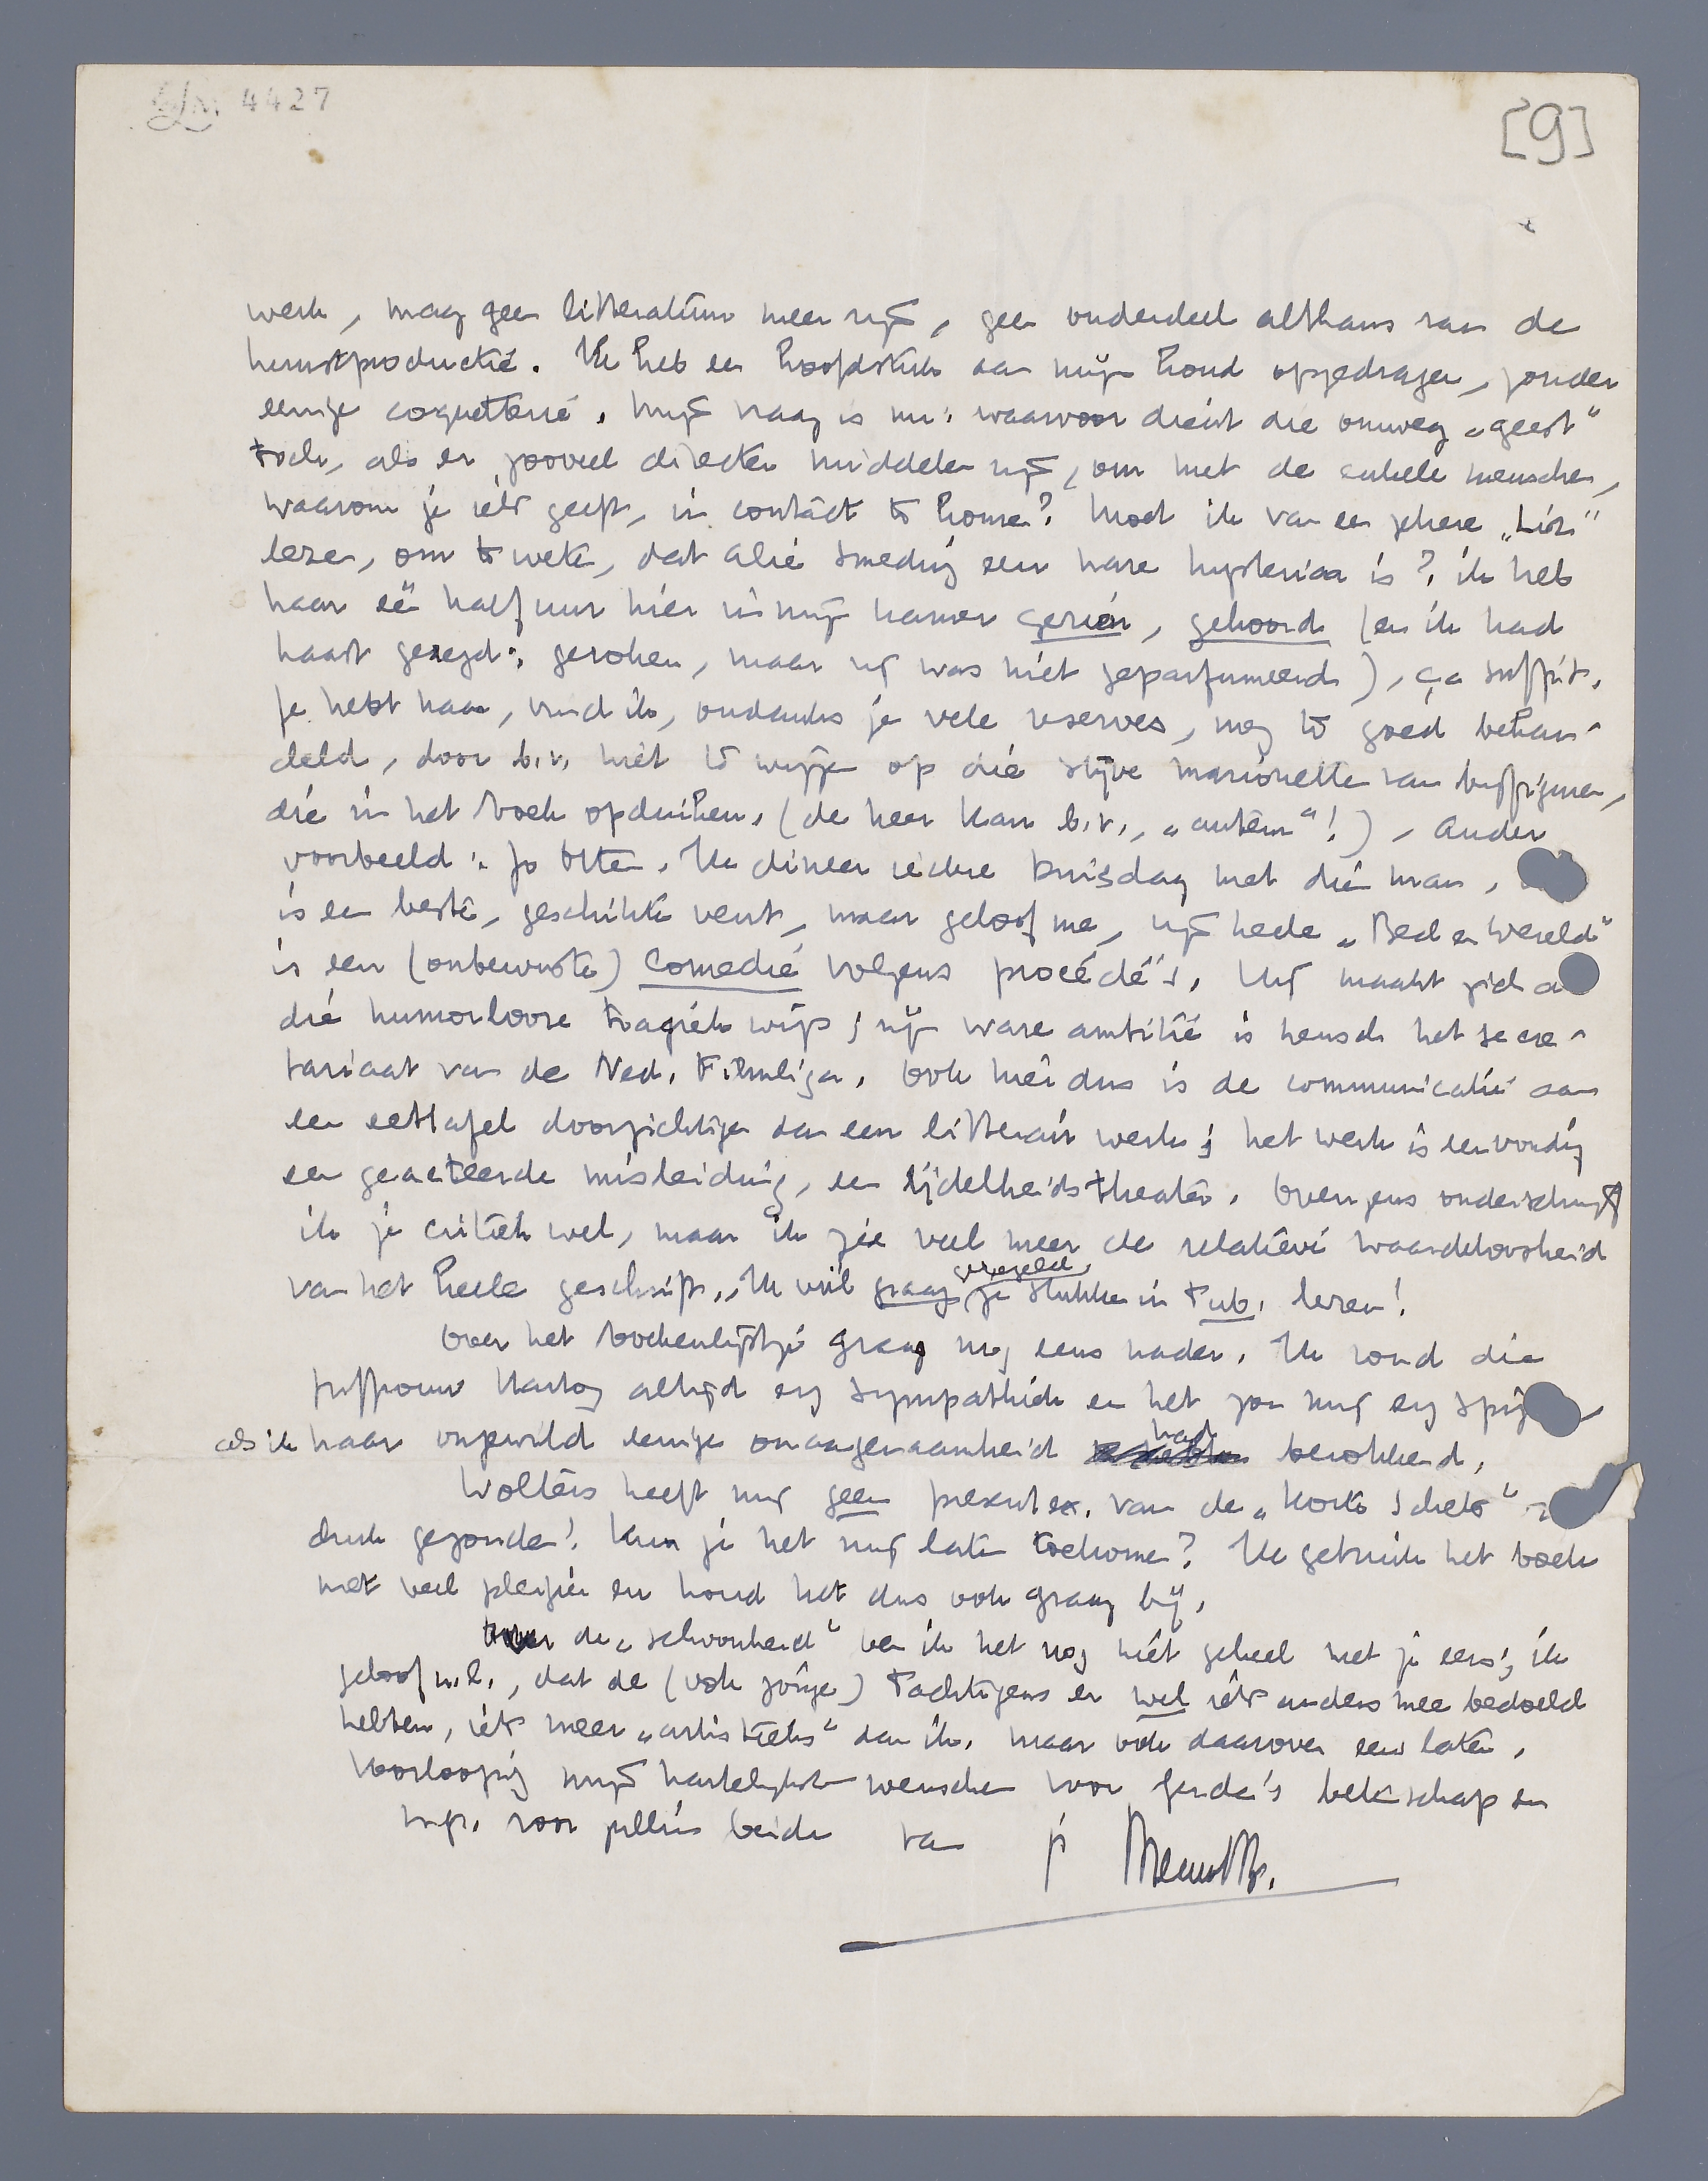 4427
[9]
werk, mag geen litteratuur meer zijn, geen onderdeel althans van de
kunstproductie. Ik heb een hoofdstuk aan mijn hond opgedragen, zonder
eenige coquetterie. Mijn vraag is nu: waarvoor dient die omweg „geest"
toch, als er zooveel directer middelen zijn, om met de enkele menschen,
waarom je iets geeft, in contact te komen? Moet ik van een zekere
lezen, om te weten, dat Alie Smeding een ware hysterica is? ik heb
haar een half uur hier in mijn kamer gezien, gehoord (en ik had
haast gezegd: geroken, maar zij was niet geparfumeerd), ça suffit.
Je hebt haar, vind ik, ondanks je vele reserves, nog te goed behan-
deld, door b.v. niet te wijzen op die stijve marionetten van buffiguren,
die in het boek opduiken. (de heer Karr b.v., „auteur"!), Ander
voorbeeld: Jo Otten. Ik dineer iedere Dinsdag met dien man,
is een beste, geschikte vent, maar geloof me, zijn heele „Bed en Wereld"
is een (onbewuste) comedie volgens procédé's. Hij maakt zich
die humorlooze tragiek wijs; zijn ware ambitie is heusch het secre-
tariaat van de Ned. Filmliga. Ook hier dus is de communicatie aan
een eettafel doorzichtiger dan een litterair werk; het werk is eenvoudig
een geacteerde misleiding, een ijdelheidstheater. Overigens onderschrijf
ik je critiek wel, maar ik zie veel meer de relatieve waardeloosheid
van het heele geschrift. Ik wil graag geregeld je stukken in Tub. lezen!
Over het boekenlijstje graag nog eens nader. Ik vond die
juffrouw Hartog altijd erg sympathiek en het zou mij erg
als ik haar ongewild eenige onaangenaamheid had berokkend.
Wolters heeft mij geen present ex. van de „Korte Schets"
druk gezonden! Kun je het mij laten toekomen? Ik gebruik het boek
met veel plezier en houd het dus ook graag bij.
Over de „schoonheid" ben ik het nog niet geheel met je eens; ik
geloof n.l., dat de (ook jonge) Tachtigers er wel iets anders mee bedoeld
hebben, iets meer „artistieks" dan ik. Maar ook daarover eens later.
Voorloopig mijn hartelijkste wenschen voor Gerda's beterschap en
m.gr. voor jullie beiden van je Menno tB.